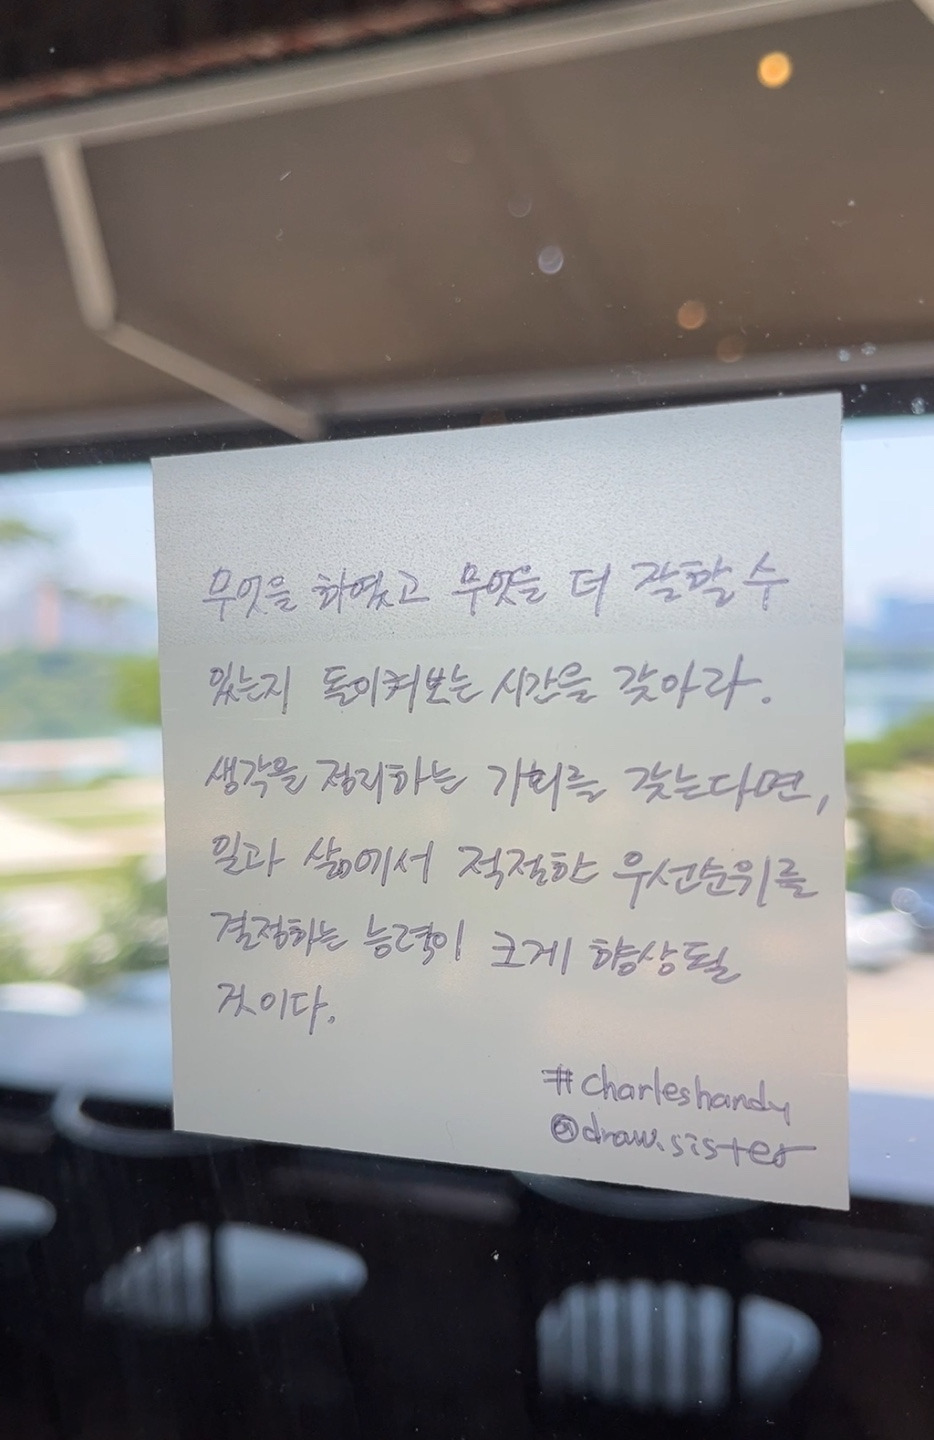 무엇을 하였고 무엇을 더 잘할 수
있는지 돌이켜보는 시간을 갖아라.
생각을 정리하는 기회를 갖는다면,
일과 삶에서 적절한 우선순위를
결정하는 능력이 크게 향상될
것이다.
#charleshandy
@draw.sister